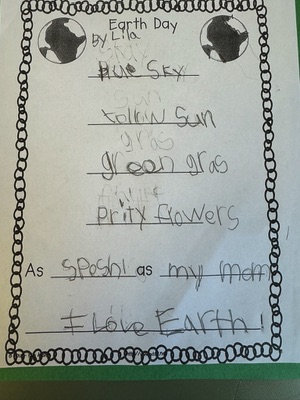 Earth Day
By Lila
Blue Sky
Yallow Sun
green gras
prity flowers
As speshl as my mom
I love Earth!